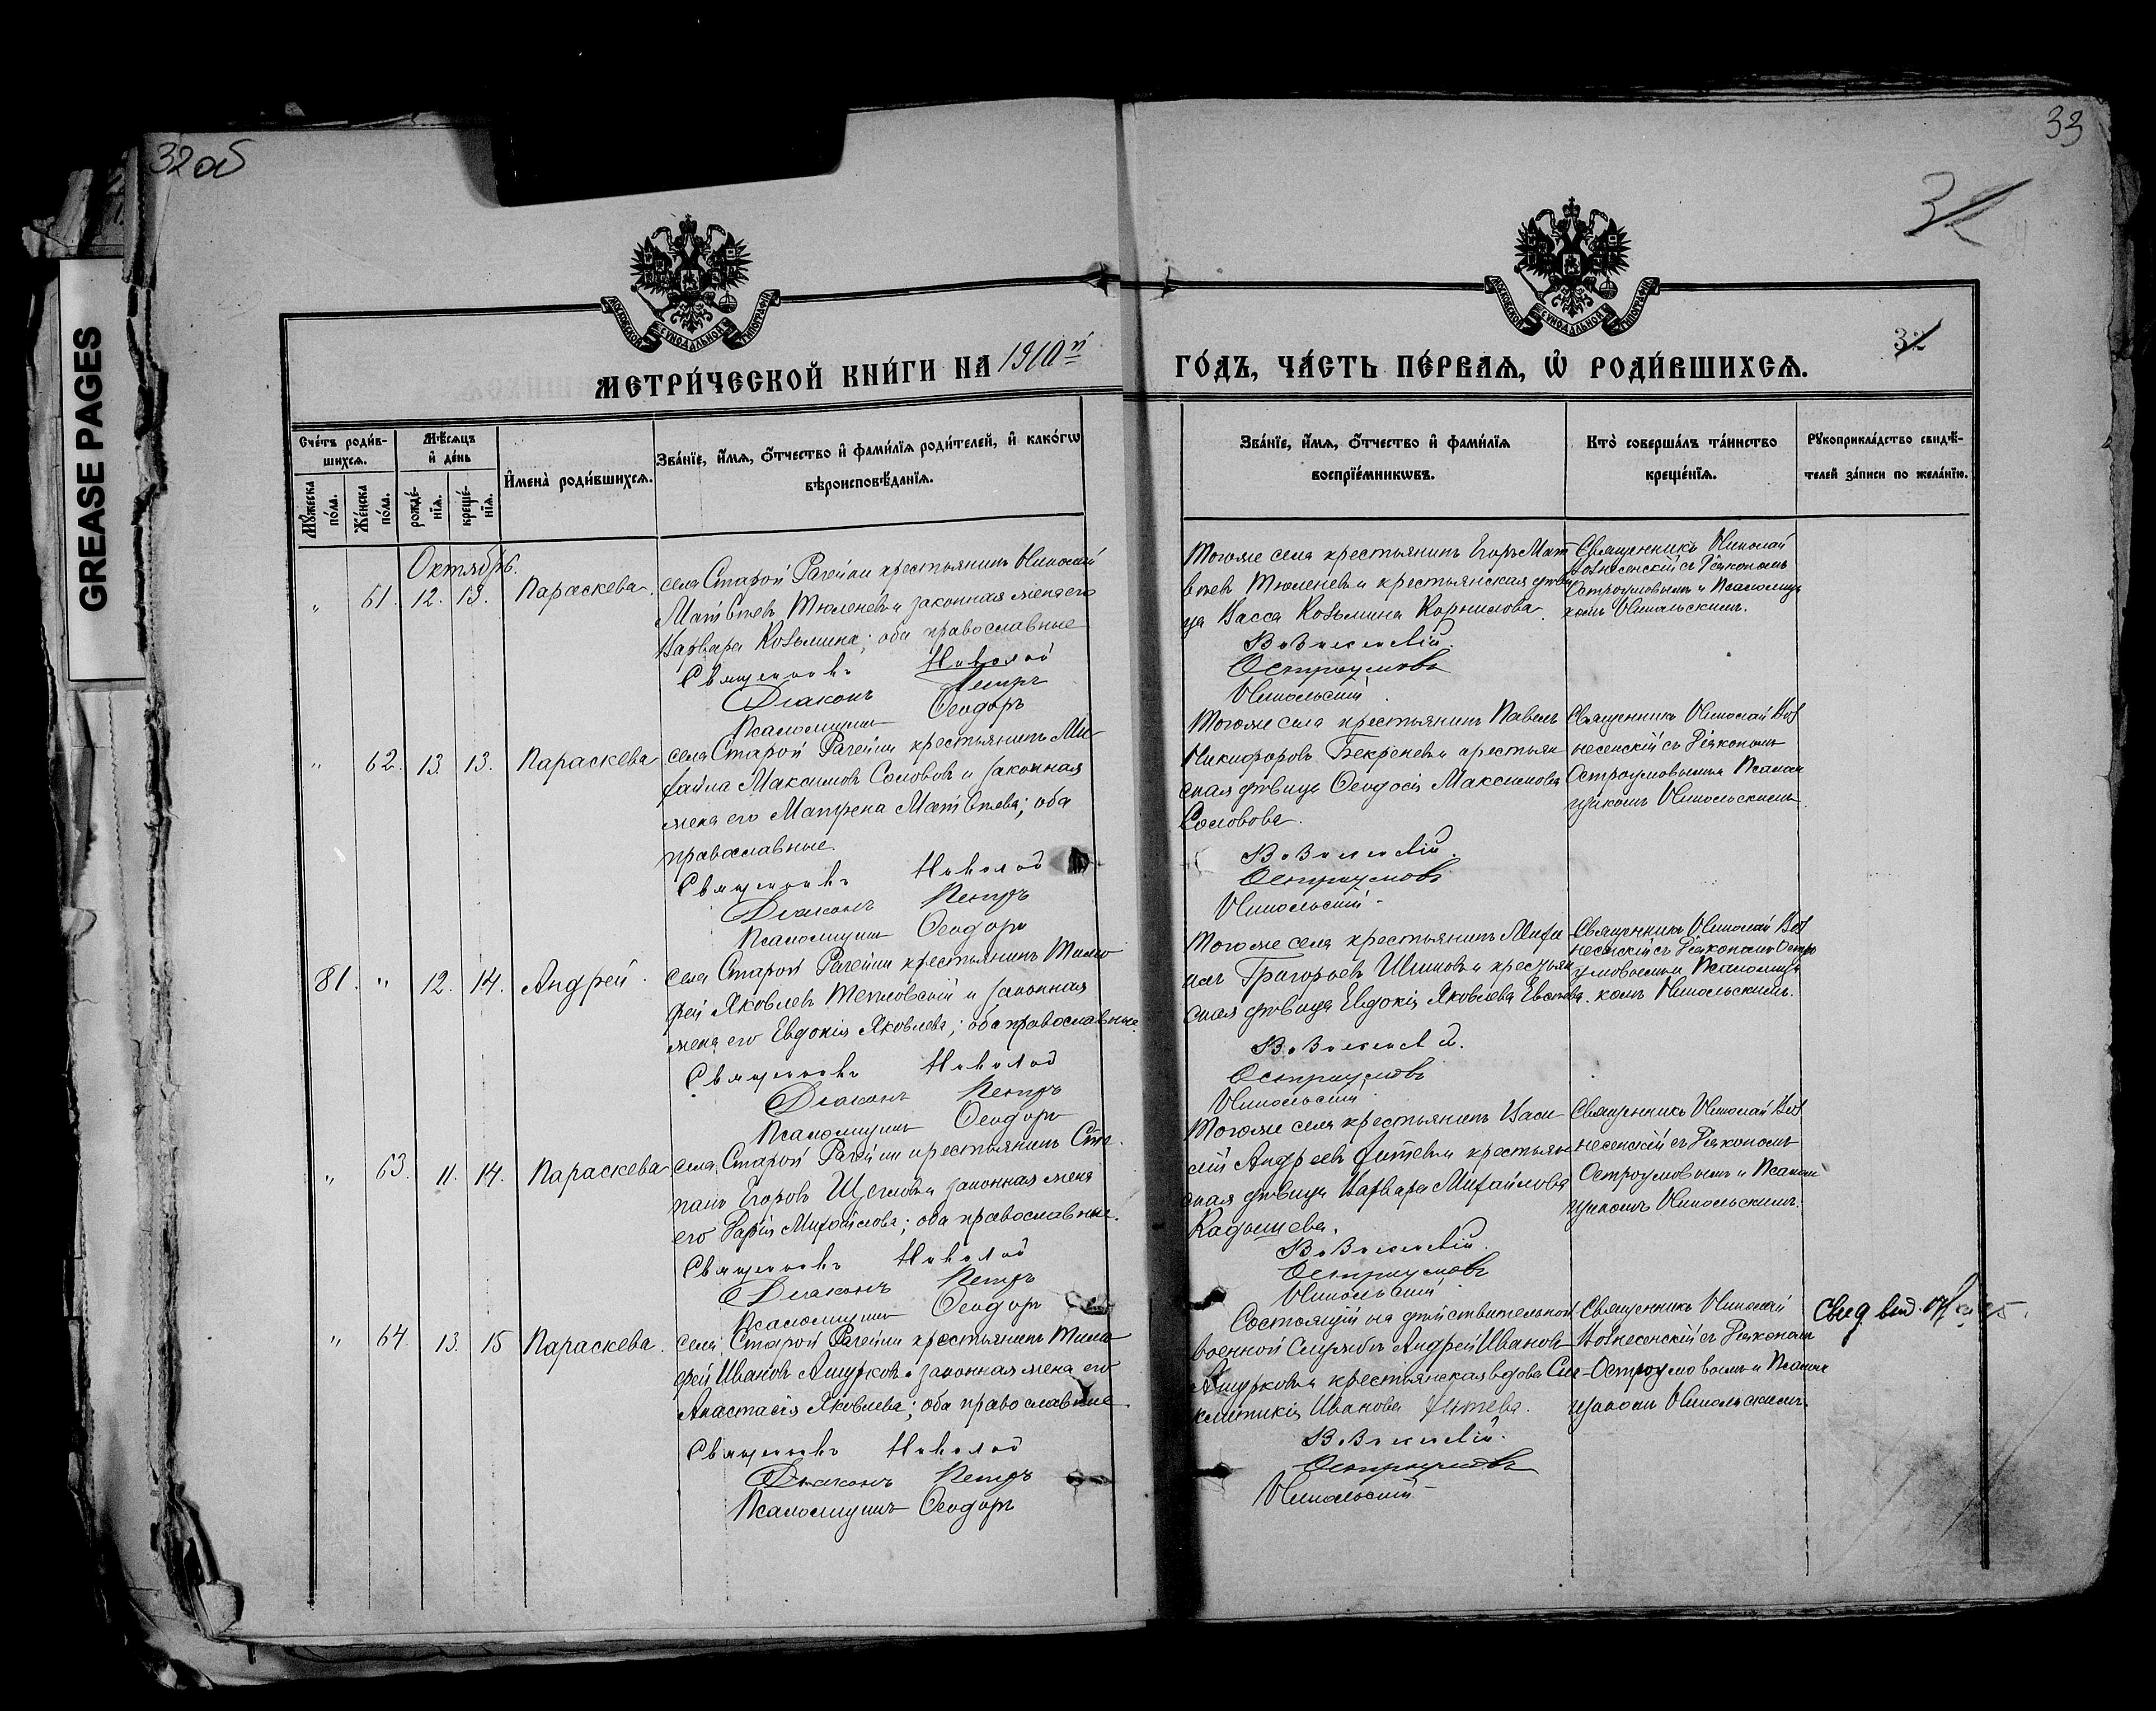 32об
33
32
GREASE PAGES
МОСКОВСКОЙ СѴНОДАЛЬНОЙ ТИПОГРАФІИ
МОСКОВСКОЙ СѴНОДАЛЬНОЙ ТИПОГРАФІИ
32
МЕТРИ́ЧЕСКОЙ КНИ́ГИ НА 1910й
ГО́ДЪ, ЧА́СТЬ ПЕ́РВАѦ, Ѡ҆ РОДИ́ВШИХСѦ.
Сче́тъ роди́в-
шихсѧ.
Мꙋ́жеска по́ла.
Же́нска по́ла.
Мѣ́сѧцъ
и҆ де́нь
рожде́-
нїѧ.
креще́-
нїѧ.
И҆мена̀ роди́вшихсѧ.
Зва́нїе, и҆́мѧ, ѻ҆́тчество и҆ фами́лїѧ роди́телей, и҆ како́гѡ
вѣроисповѣ́данїѧ.
Зва́нїе, и҆́мѧ, ѻ҆́тчество и҆ фами́лїѧ
воспрїе́мникѡвъ.
Кто̀ соверша́лъ та́инство
креще́нїѧ.
Рꙋкоприкла́дство свидѣ́-
телей за́писи по жела́нїю.
Октябрь.
" 61. 12. 13. Параскева.
села Старой Рачейки крестьянинъ Николай
Матвѣевъ Тюленевъ и законная жена его
Варвара Козьмина; оба православные
Священникъ Николай
Діаконъ Петръ
Псаломщикъ Ѳеодоръ
Тогоже села крестьянинъ Егоръ Мат
вѣевъ Тюленевъ и крестьянская дѣви
ца Васса Козьмина Корнилова.
Вознесенскій
Остроумовъ
Никольскій
Священникъ Николай
Вознесенскій съ Діакономъ
Остроумовымъ и Псаломщи
комъ Никольскимъ.
" 62. 13. 13. Параскева
села Старой Рачейки крестьянинъ Ми-
хаила Максимовъ Соловов и законная
жена его Матрена Матвѣева; оба
православные.
Священникъ Николай
Діаконъ Петръ
Псаломщикъ Ѳеодоръ
Тогоже села крестьянинъ Павелъ
Никифоровъ Бекреневъ и крестьян
ская дѣвица Ѳеодосія Максимова
Соловова.
Вознесенскій
Остроумовъ
Никольскій
Священникъ Николай Воз
несенскій съ Діакономъ
Остроумовымъ и Псалом
щикомъ Никольскимъ.
81. " 12. 14. Андрей.
села Старой Рачейки крестьянинъ Тимо
фей Яковлевъ Тепловскій и законная
жена его Евдокія Яковлева; оба православные.
Священникъ Николай
Діаконъ Петръ
Псаломщикъ Ѳеодоръ
Тогоже села крестьянинъ Миха
илъ Григорьевъ Шишовъ и крестьян
ская дѣвица Евдокія Яковлева
Вознесенскій
Остроумовъ
Никольскій
Священникъ Николай Воз
несенскій съ Діакономъ Остро
умовымъ и Псаломщи
комъ Никольскимъ.
" 63. 11. 14. Параскева
села Старой Рачейки крестьянинъ Сте-
панъ Егоровъ Щегловъ и законная жена
его Дарія Михайлова; оба православные.
Священникъ Николай
Діаконъ Петръ
Псаломщикъ Ѳеодоръ
Тогоже села крестьянинъ Васи-
лій Андреевъ и крестьян
ская дѣвица Варвара Михайлова
Кадышева.
Вознесенскій
Остроумовъ
Никольскій
Священникъ Николай Воз
несенскій съ Діакономъ
Остроумовымъ и Псалом
щикомъ Никольскимъ.
" 64. 13. 15 Параскева.
села Старой Рачейки крестьянинъ Тимо
фей Ивановъ Ашурковъ и законная жена его
Анастасія Яковлева; оба православные
Священникъ Николай
Діаконъ Петръ
Псаломщикъ Ѳеодоръ
Состоящій на дѣйствительной
военной службѣ Андрей Ивановъ
Ашурковъ и крестьянская вдова Син-
клитикія Иванова
Вознесенскій
Остроумовъ
Никольскій
Священникъ Николай
Вознесенскій съ Діакономъ
Остроумовымъ и Псалом
щикомъ Никольскимъ.
Свид. выд.